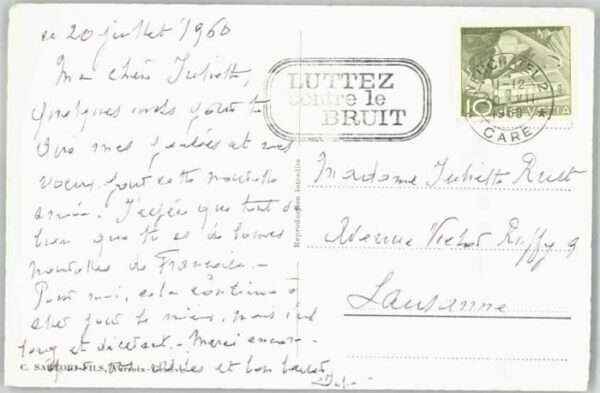 ce 20 juillet 1960
Ma chère Juliette,
Quelques mots pour te
que mes pensées et mes
voeux pour cette nouvelle
année. J'espère que tout va
bien que tu as de bonnes
nouvelles de
Pour moi, cela continue à
aller pour le mieux, mais c'est
long et - Merci encore
et bon baiser
C. SARTORI FILS,
Reproduction interdite
LUTTEZ
contre le
BRUIT
NEUCHATEL 2
1960
GARE
10
HELVETIA
Madame Juliette Rust
Avenue Victor Ruffy 9
Lausanne